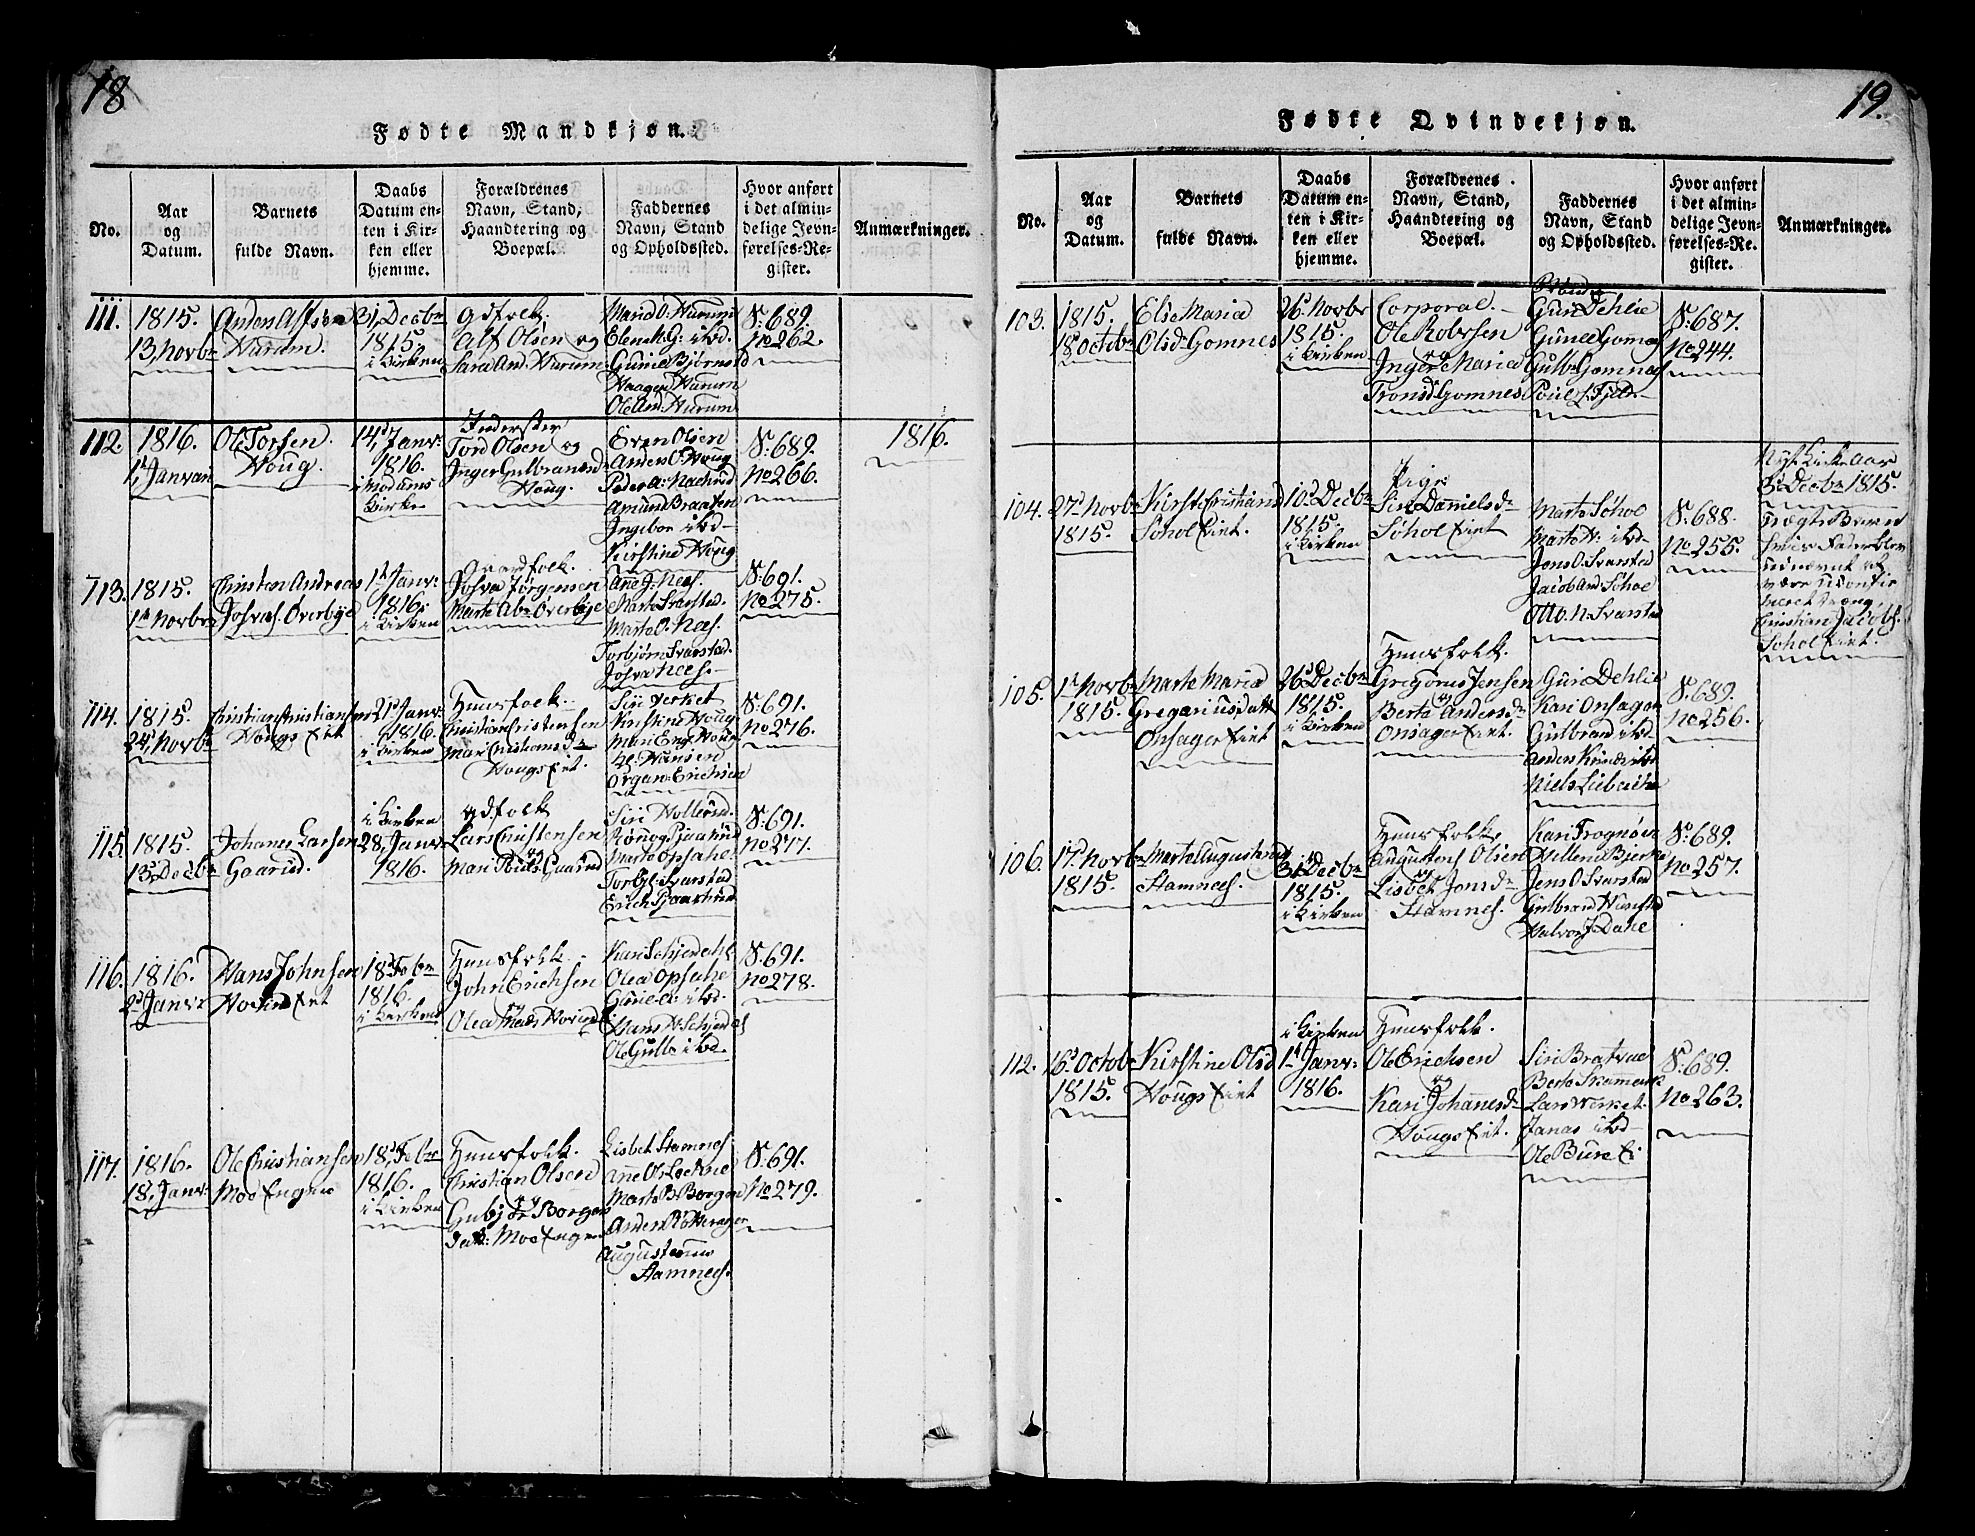 18
Fødte Mandkjøn.
No.
Aar
og
Datum.
Barnets
fulde Navn.
Daabs
Datum en-
ten i Kir-
ken eller
hjemme.
Forældrenes
Navn, Stand,
Haandtering og
Boepæl.
Faddernes
Navn, Stand
og Opholdssted.
Hvor anført
i det almin-
delige Jevn-
førelses-Re-
gister.
Anmærkninger.
111.
1815.
13, Novbr
Anders Alfsen
Hurum.
31, Decbr
1815.
i Kirken
Gdfolk.
Alf Olsen og
Sara And. Hurum.
Elen M. G: ibd.
Haagen Hurum
Ole And: Hurum
S: 689.
No 262.
112.
1816.
1, Januari
Ole Torsen
Houg.
14, Janr:
1816.
i Modums
Kirke
Inderster
Tord Olsen og
Inger Gulbransd.
Houg.
Even Olsen
Anders O: Houg
Amund Braaten
Ingebor ibd
Kirstine Houg
S: 689.
No 266.
1816.
113.
1815.
1 Novbr
Christian Andreas
Josvas. Overbye
1 Janr:
1816.
i Kirken
Gaardfolk.
Josva Jørgensen
Marte Abr. Overbye
Ane J: Nees.
Marte Svarstad.
Marte O: Nees.
Torbjørn Svarstad.
Josva Nees.
S: 691.
No 275.
114.
1815.
24, Novbr
Christian Christiansen
Hougs Eiet
21 Janr:
1816.
i Kirken
Huusfolk.
Christian Christensen
Mari Christiansd.
Hougs Eiet.
Siri Verket
Kirstine Houg
Mari Eng. Houg
H. Hansen
Organ: Erichsen
S: 691.
No 276.
115.
1815.
13, Decbr
Johanes Larsen
Gaarud.
i Kirken
28, Janr
1816.
Gdfolk
Lars Christensen
og
Mari Pouls. Gaarud
Siri Hollerud.
Rønog Pjaakud
Marte Opsahl.
Torbj: Svarstad
Erich Pjaakud
S: 691.
No 277.
116.
1816.
2 Janr:
Hans Johnsen
Hovind Eiet
18 Febr
1816.
i Kirken
Huusfolk.
John Erichsen
og
Olea Mads. Hovind E
Kari Schjerdahl
Olea Opsahl
Hans H: Schjerdal
Ole Gulb: ibd.
S: 691.
No 278.
117.
1816.
18, Janr:
Ole Christiansen
Moe Engen
18, Febr
1816.
i Kirken
Huusfolk.
Christian Olsen
og
Gubjør Borgers
datt: Moe Engen
Lisbet Stamnes
Marte B. Borgen
Anders Rotterager
Augustinus
Stamnees.
S: 691.
No 279.
19.
Fødte Qvindekjøn.
No.
Aar
og
Datum.
Barnets
fulde Navn.
Daabs
Datum en-
ten i Kir-
ken eller
hjemme.
Forældrenes
Navn, Stand,
Haandtering og
Boepæl.
Faddernes
Navn, Stand
og Opholdssted.
Hvor anført
i det almin-
delige Jevn-
førelses-Re-
gister.
Anmærkninger.
103.
1815.
18 Octbr
Else Maria
Olsd: Gomnes
26 Novbr
1815.
i Kirken
Corporal.
Ole Robersen
og
Inger Maria
Tronsd: Gomnes
Guri Dehlie
Gunel Gomnes
Gulbr: Gomnes
S: 687.
No 244.
104.
27 Novbr
1815.
Kirsti Cristiansd
Søhol Eiet.
10 Decbr
1815.
i Kirken
Pige
Siri Danielsdr
Søhol Eiet
Marte Søhol
Marte N: ibd
Jens O. Svarstad
Jacob And: Søhol
Otto N. Svarstad
S: 688.
No 255.
Nyt Kirke Aar
3 Decbr 1815.
Uægte Barn
hvis Fader blev
udnævnt at
være
Christian Jacobs.
Søhol Eiet.
105.
1 Novbr
1815.
Marte Maria
Gregoriusdatt
Onsager Eiet
26 Decbr
1815.
i Kirken
Huusfolk.
Gregorius Jensen
og
Berte Andersdr
Onsager Eiet.
Guri Dehlie
Kari Onsager
Gulbrand ibd
S: 689.
No 256.
106.
17 Novbr
1815.
Marte Augustinusd
Stamnees.
31 Decbr
1815.
i Kirken
Huusfolk.
Augustins Olsen
og
Lisbet Jonsdr
Stamnes.
Kari Frognøen
Hellene Bjerke
Jens O Svarstad
Halvor J: Dahl
S: 689.
No 257.
112.
16 Octob
1815.
Kirstine Olsd
Hougs Eiet
i Kirken
1 Janr:
1816.
Huusfolk.
Ole Erichsen
og
Kari Johanesdr
Hougs Eiet.
Siri Bratvad
Lars Werket.
Janas ibd
S: 689.
No 263.